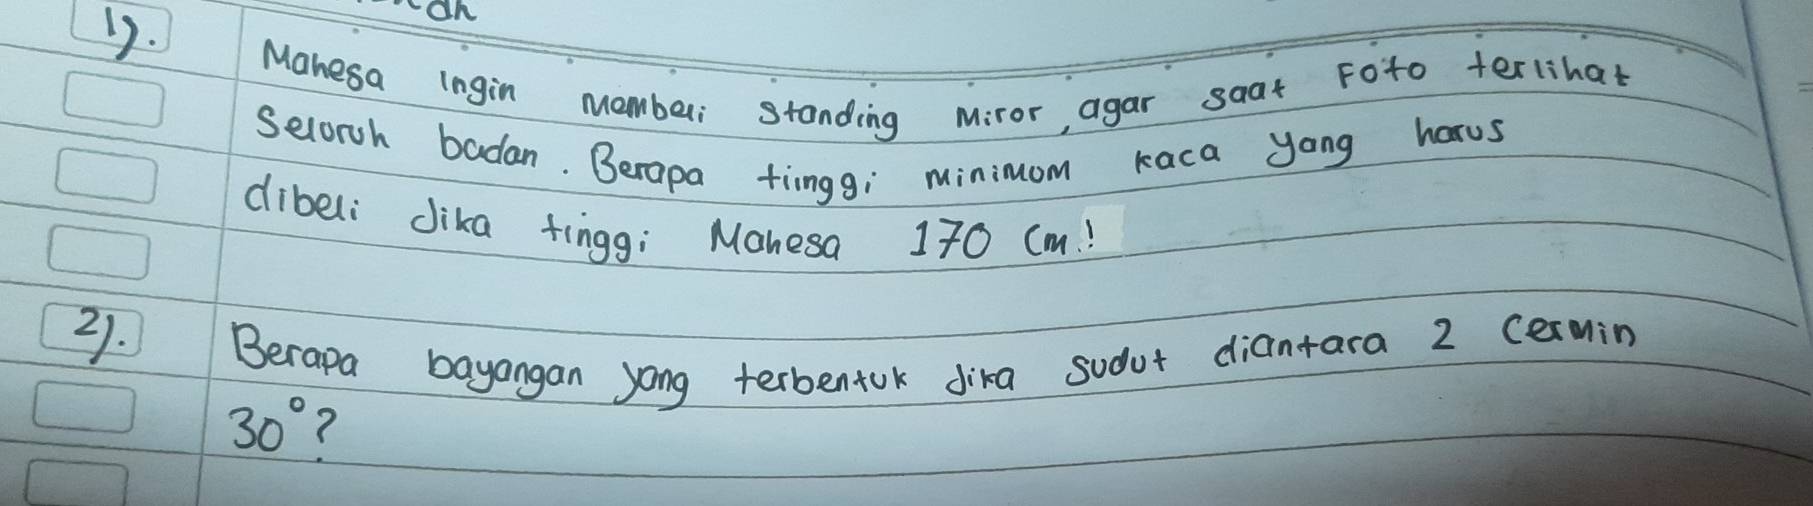 1). Mahesa ingin membeli standing miror, agar saat foto terlihat
seluruh badan. Berapa tiinggi minimum kaca yang harus
dibeli Jika tinggi Mahesa 170 cm!
2). Berapa bayangan yang terbentuk Jika sudut diantara 2 cermin
30°?